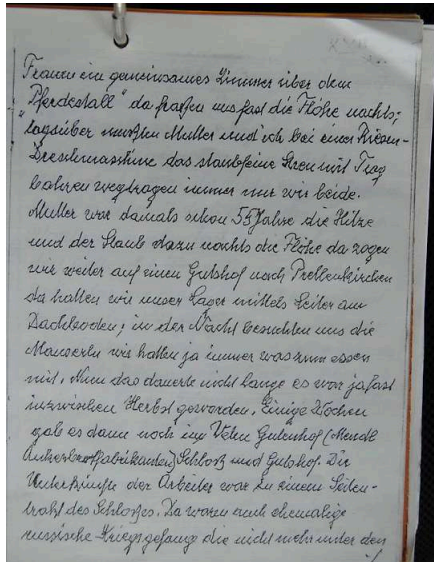 Frauen ein gemeinsames Zimmer über dem
Pferdestall" da fraßen uns fast die Flöhe nachts;
tagsüber mußten Mutter und ich bei einer Riesen-
Dreschmaschine das staubfeine Streu mit Trag
bahren wegtragen immer nur wir beide.
Mutter war damals schon 55 Jahre die Hitze
und der Staub dazu nachts die Flöhe da zogen
wir weiter auf einen Gutshof nach Prellenkirchen
da hatten wir unser Lager mittels Leiter am
Dachboden; in der Nacht besuchten uns die
Mauserln wir hatten ja immer was zum essen
mit. Nun das dauerte nicht lange es war ja fast
inzwischen Herbst geworden. Einige Wochen
gab es dann noch im Gutenhof (Mendl
Ankerbrotfabrikanden) Schloß und Gutshof. Die
Unterkünfte der Arbeiter war in einem Seiten-
trakt des Schloßes. Da waren auch ehemalige
russische Kriegsgefang die nicht mehr unter den